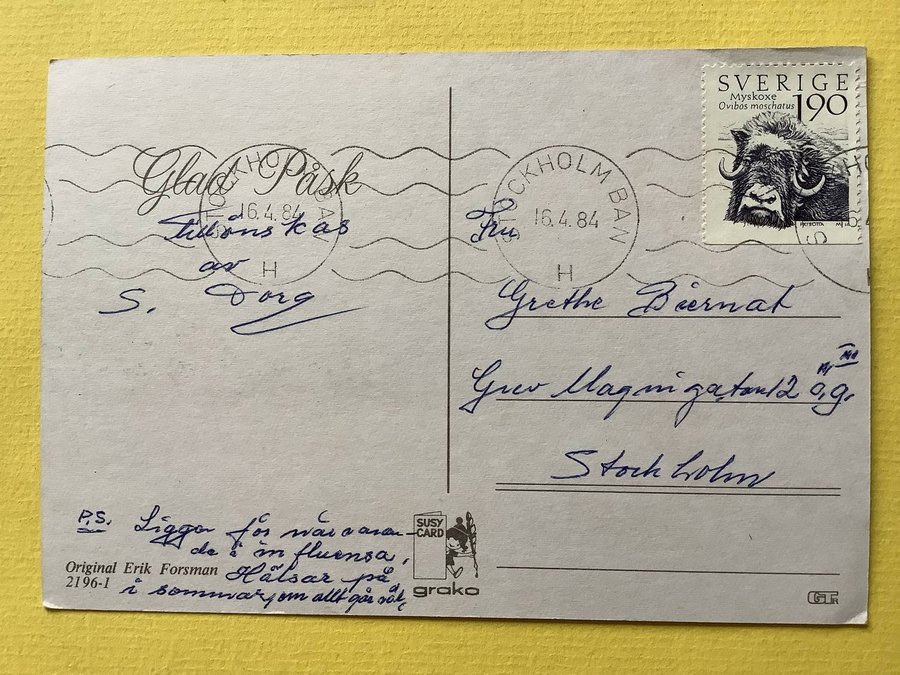 SVERIGE
Myskoxe
Ovibos moschatus
190
STOCKHOLM BAN
16.4.84
H
STOCKHOLM BAN
16.4.84
H
Glad Påsk
tillönskas
av
S. Dorg
Fru
Grethe Biernat
Grev Magnigatan 12 ö.g.
Stockholm
P.S. Ligger för närvaran-
de i influensa,
Hälsar på
i sommar, om allt går väl.
Original Erik Forsman
2196-1
SUSY
CARD
grako